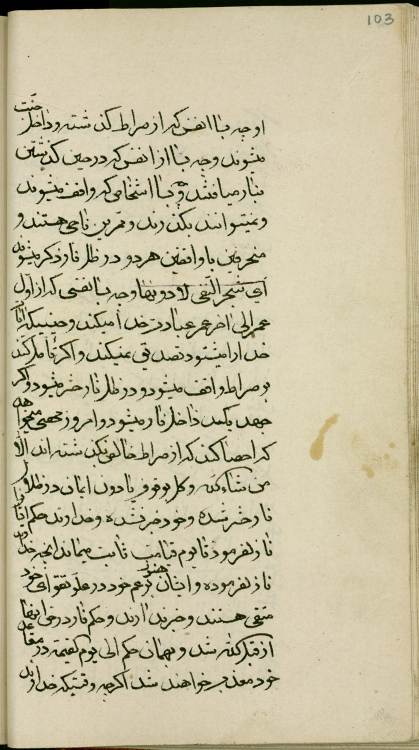 103
او چه بسا انفس که از صراط گذشته و داخل جنت
میشوند و چه بسا از انفس که در حین گذشتن
بنار میافتند و چه بسا اشخاصی که واقف میشوند
و نمیتوانند بگذرند و ممرین ناجی هستند و
منحرفین با واقفین هر دو در ظل نار ذکر میشوند
ای شجر النفی لا دونها و چه بسا نفسی که از اول
عمر الی اخر عمر عبادت خدا میکند و حینیکه
خدا را میشنود تصدیق نمیکند و اگر تامل کند
بر صراط واقف میشود و در ظل نار حشر میشود و اگر
جهد بکند داخل نار میشود و امروز جمعی میخواهد
که احصا کند که از صراط خالص بگذشته اند الا
من شاء الله و کل بوقوف یا دون ایمان در ظل
نار حشر شده و خود خبر نشده و خداوند حکم
نازل فرموده تا یوم قیامت ثابت میماند انچه خدا
نازل فرموده و ایشان هنوز بزعم خود در علو تقوای خود
متقی هستند و خبر ندارند و حکم نار در حق انها
از قبل الله شد و بهمان حکم الی یوم القیمة در
خود معذب خواهند شد اگر چه وقتیکه خداوند